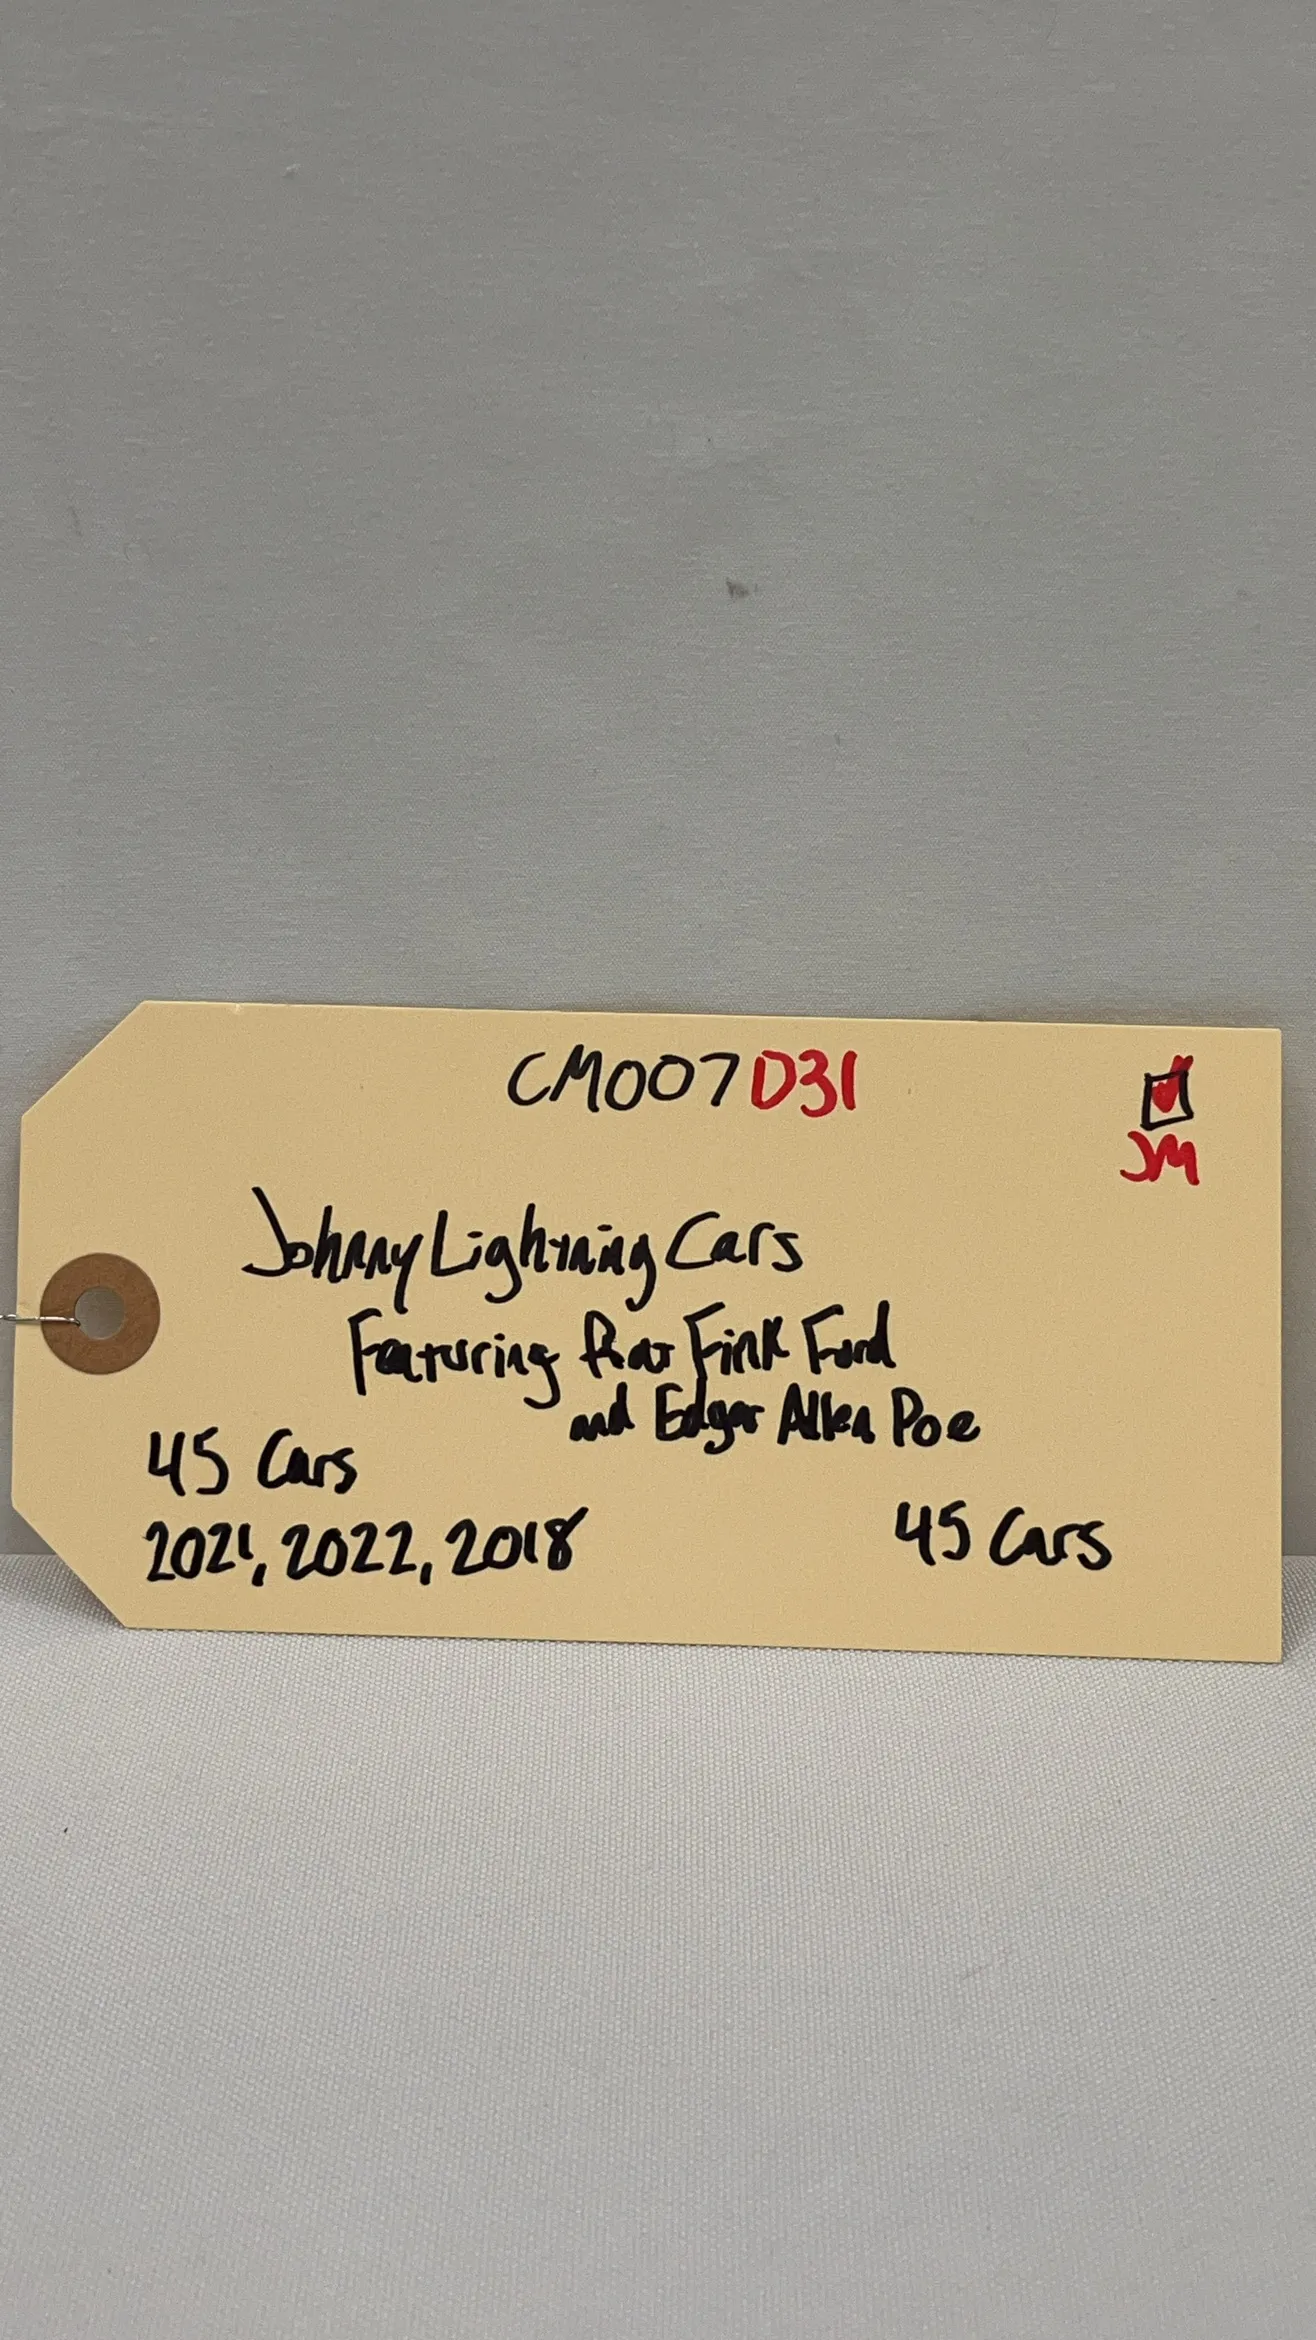 CM007D31
JM
Johnny Lightning Cars
Featuring Rat Fink Ford
and Edgar Allen Poe
45 Cars
2021, 2022, 2018
45 Cars